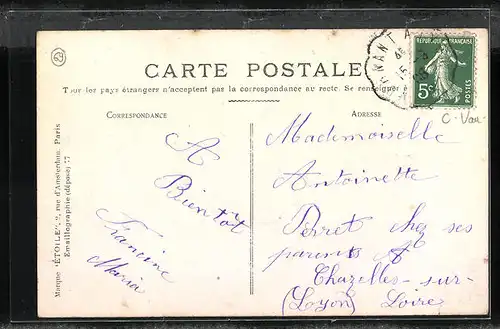 CARTE POSTALE
Tous les pays étrangers n'acceptent pas la correspondance au recto. Se renseigner
CORRESPONDANCE
ADRESSE
RÉPUBLIQUE FRANÇAISE
5c
POSTES
C-Var
A
Bientôt
Francine
Maria
Mademoiselle
Antoinette
Perret chez ses
parents à
Chazelles-sur-
(Loyon) Loire
Marque "ÉTOILE", rue d'Amsterdam, Paris
Emaillographie (déposé) 77